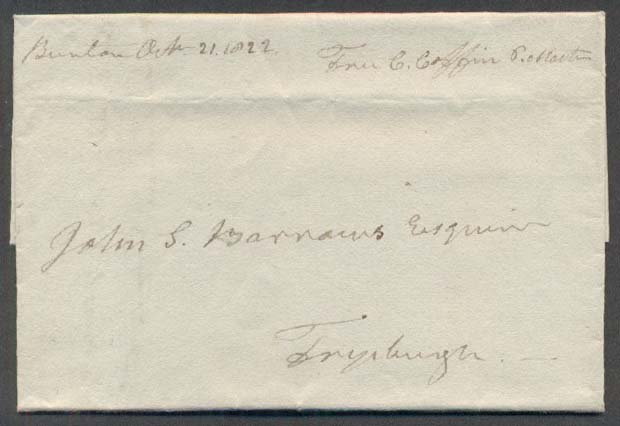 Buxton Oct. 21. 1822. Free C. Coffin P. Master
John S. Barrows Esquire
Fryeburgh.